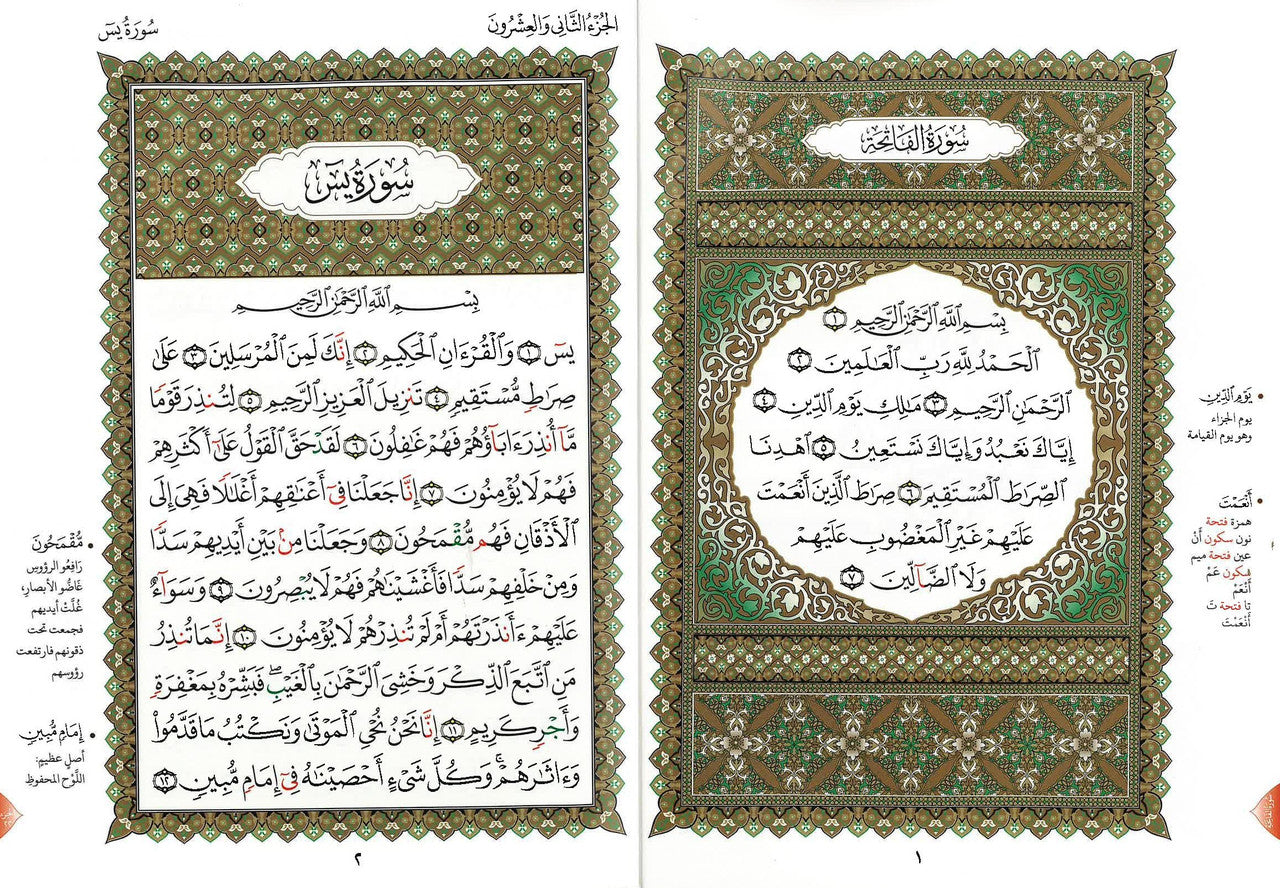 سُورَةُ الفَاتِحَةِ
بِسْمِ ٱللَّهِ ٱلرَّحْمَٰنِ ٱلرَّحِيمِ ١
ٱلْحَمْدُ لِلَّهِ رَبِّ ٱلْعَٰلَمِينَ ٢
ٱلرَّحْمَٰنِ ٱلرَّحِيمِ ٣ مَٰلِكِ يَوْمِ ٱلدِّينِ ٤
إِيَّاكَ نَعْبُدُ وَإِيَّاكَ نَسْتَعِينُ ٥ ٱهْدِنَا
ٱلصِّرَٰطَ ٱلْمُسْتَقِيمَ ٦ صِرَٰطَ ٱلَّذِينَ أَنْعَمْتَ
عَلَيْهِمْ غَيْرِ ٱلْمَغْضُوبِ عَلَيْهِمْ
وَلَا ٱلضَّآلِّينَ ٧
يَوْمِ ٱلدِّينِ
يوم الجزاء
وهو يوم القيامة
أَنْعَمْتَ
همزة فتحة
نون سكون أَنْ
عين فتحة ميم
سكون عَمْ
أَنْعَمْ
تا فتحة تَ
أَنْعَمْتَ
سورة الفاتحة
١
الجُزْءُ الثَّانِي وَالعِشْرُونَ
سُورَةُ يسٓ
سُورَةُ يسٓ
بِسْمِ ٱللَّهِ ٱلرَّحْمَٰنِ ٱلرَّحِيمِ
يسٓ ١ وَٱلْقُرْءَانِ ٱلْحَكِيمِ ٢ إِنَّكَ لَمِنَ ٱلْمُرْسَلِينَ ٣ عَلَىٰ
صِرَٰطٍ مُّسْتَقِيمٍ ٤ تَنزِيلَ ٱلْعَزِيزِ ٱلرَّحِيمِ ٥ لِتُنذِرَ قَوْمًا
مَّآ أُنذِرَ ءَابَآؤُهُمْ فَهُمْ غَٰفِلُونَ ٦ لَقَدْ حَقَّ ٱلْقَوْلُ عَلَىٰٓ أَكْثَرِهِمْ
فَهُمْ لَا يُؤْمِنُونَ ٧ إِنَّا جَعَلْنَا فِىٓ أَعْنَٰقِهِمْ أَغْلَٰلًا فَهِىَ إِلَى
ٱلْأَذْقَانِ فَهُم مُّقْمَحُونَ ٨ وَجَعَلْنَا مِنۢ بَيْنِ أَيْدِيهِمْ سَدًّا
وَمِنْ خَلْفِهِمْ سَدًّا فَأَغْشَيْنَٰهُمْ فَهُمْ لَا يُبْصِرُونَ ٩ وَسَوَآءٌ
عَلَيْهِمْ ءَأَنذَرْتَهُمْ أَمْ لَمْ تُنذِرْهُمْ لَا يُؤْمِنُونَ ١٠ إِنَّمَا تُنذِرُ
مَنِ ٱتَّبَعَ ٱلذِّكْرَ وَخَشِىَ ٱلرَّحْمَٰنَ بِٱلْغَيْبِ ۖ فَبَشِّرْهُ بِمَغْفِرَةٍ
وَأَجْرٍ كَرِيمٍ ١١ إِنَّا نَحْنُ نُحْىِ ٱلْمَوْتَىٰ وَنَكْتُبُ مَا قَدَّمُوا۟
وَءَاثَٰرَهُمْ ۚ وَكُلَّ شَىْءٍ أَحْصَيْنَٰهُ فِىٓ إِمَامٍ مُّبِينٍ ١٢
مُّقْمَحُونَ
رَافِعُو الرؤوسِ
غَاضُّو الأبصار؛
غُلَّتْ أيديهم
فجمعت تحت
ذقونهم فارتفعت
رؤوسهم
إِمَامٍ مُّبِينٍ
أصلٍ عظيمٍ:
اللَّوْح المحفوظِ
٢